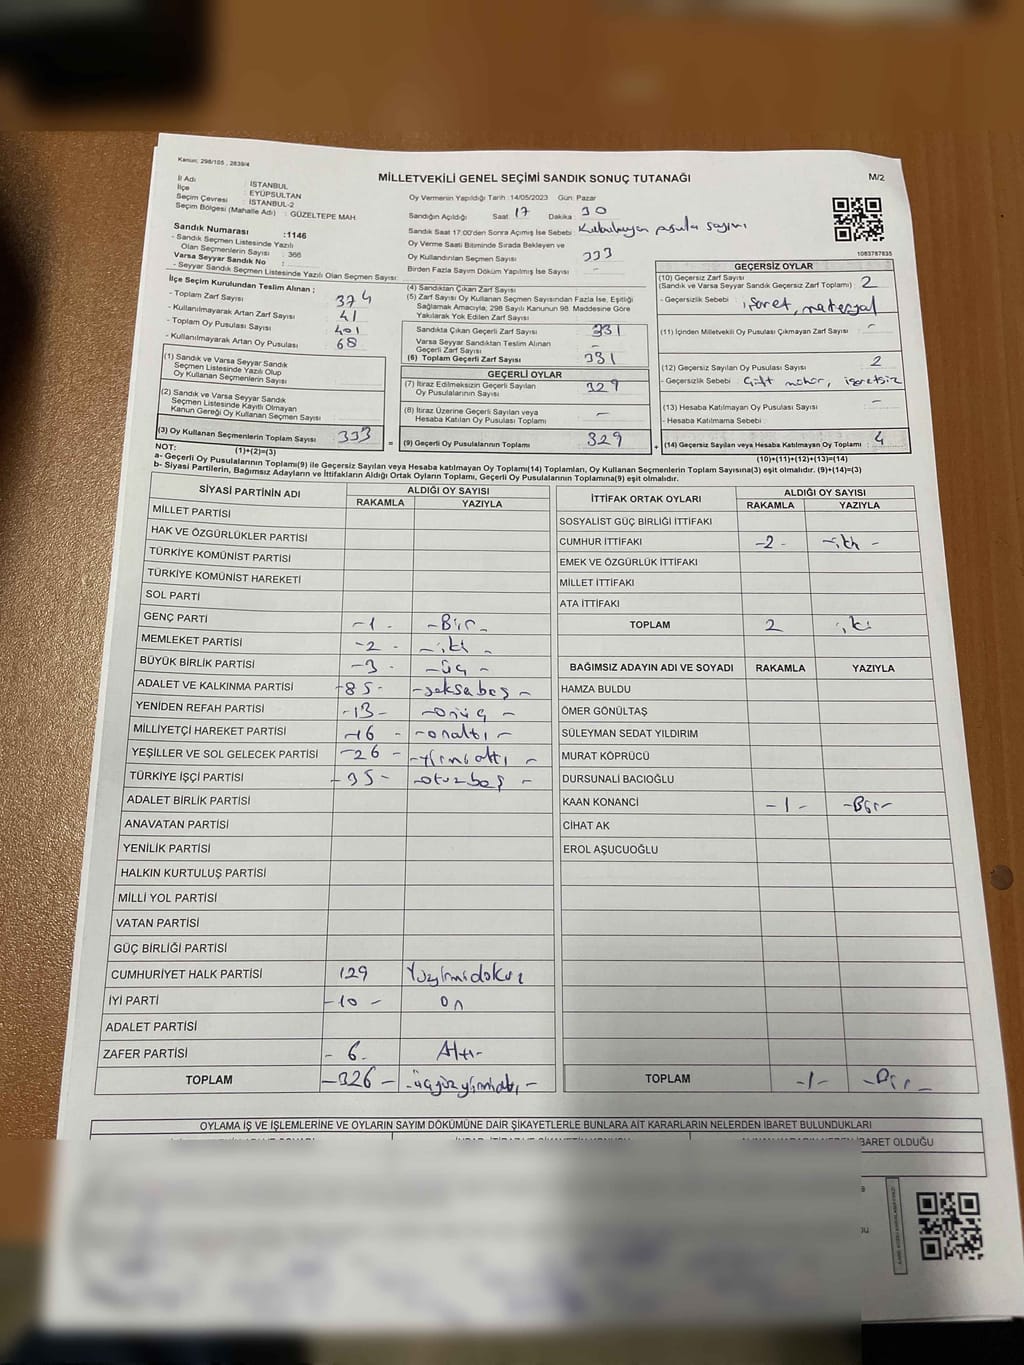 Kanun: 298/105 , 2839/4
MİLLETVEKİLİ GENEL SEÇİMİ SANDIK SONUÇ TUTANAĞI
M/2
İl Adı : İSTANBUL
İlçe : EYÜPSULTAN
Seçim Çevresi : İSTANBUL-2
Seçim Bölgesi (Mahalle Adı) : GÜZELTEPE MAH.
Sandık Numarası :1146
- Sandık Seçmen Listesinde Yazılı
Olan Seçmenlerin Sayısı : 366
Varsa Seyyar Sandık No :
- Seyyar Sandık Seçmen Listesinde Yazılı Olan Seçmen Sayısı:
Oy Vermenin Yapıldığı Tarih :14/05/2023 Gün: Pazar
Sandığın Açıldığı Saat 17 Dakika 30
Sandık Saat 17:00'den Sonra Açılmış İse Sebebi: pusula sayımı
Oy Verme Saati Bitiminde Sırada Bekleyen ve
Oy Kullandırılan Seçmen Sayısı 333
Birden Fazla Sayım Döküm Yapılmış İse Sayısı -
1083787835
İlçe Seçim Kurulundan Teslim Alınan ;
- Toplam Zarf Sayısı 374
- Kullanılmayarak Artan Zarf Sayısı 41
- Toplam Oy Pusulası Sayısı 401
- Kullanılmayarak Artan Oy Pusulası 68
(1) Sandık ve Varsa Seyyar Sandık
Seçmen Listesinde Yazılı Olup
Oy Kullanan Seçmenlerin Sayısı
(2) Sandık ve Varsa Seyyar Sandık
Seçmen Listesinde Kayıtlı Olmayan
Kanun Gereği Oy Kullanan Seçmen Sayısı
(3) Oy Kullanan Seçmenlerin Toplam Sayısı 333
(1)+(2)=(3)
(4) Sandıktan Çıkan Zarf Sayısı
(5) Zarf Sayısı Oy Kullanan Seçmen Sayısından Fazla İse, Eşitliği
Sağlamak Amacıyla; 298 Sayılı Kanunun 98. Maddesine Göre
Yakılarak Yok Edilen Zarf Sayısı
Sandıkta Çıkan Geçerli Zarf Sayısı 331
Varsa Seyyar Sandıktan Teslim Alınan
Geçerli Zarf Sayısı
(6) Toplam Geçerli Zarf Sayısı 331
GEÇERLİ OYLAR
(7) İtiraz Edilmeksizin Geçerli Sayılan
Oy Pusulalarının Sayısı 329
(8) İtiraz Üzerine Geçerli Sayılan veya
Hesaba Katılan Oy Pusulası Toplamı -
= (9) Geçerli Oy Pusulalarının Toplamı 329 +
GEÇERSİZ OYLAR
(10) Geçersiz Zarf Sayısı
(Sandık ve Varsa Seyyar Sandık Geçersiz Zarf Toplamı) 2
- Geçersizlik Sebebi : işaret, materyal
(11) İçinden Milletvekili Oy Pusulası Çıkmayan Zarf Sayısı -
(12) Geçersiz Sayılan Oy Pusulası Sayısı 2
- Geçersizlik Sebebi : Çift mühür, işaretsiz
(13) Hesaba Katılmayan Oy Pusulası Sayısı -
- Hesaba Katılmama Sebebi
(14) Geçersiz Sayılan veya Hesaba Katılmayan Oy Toplamı : 4
(10)+(11)+(12)+(13)=(14)
NOT:
a- Geçerli Oy Pusulalarının Toplamı(9) ile Geçersiz Sayılan veya Hesaba katılmayan Oy Toplamı(14) Toplamları, Oy Kullanan Seçmenlerin Toplam Sayısına(3) eşit olmalıdır. (9)+(14)=(3)
b- Siyasi Partilerin, Bağımsız Adayların ve İttifakların Aldığı Ortak Oyların Toplamı, Geçerli Oy Pusulalarının Toplamına(9) eşit olmalıdır.
SİYASİ PARTİNİN ADI
ALDIĞI OY SAYISI
RAKAMLA YAZIYLA
MİLLET PARTİSİ
HAK VE ÖZGÜRLÜKLER PARTİSİ
TÜRKİYE KOMÜNİST PARTİSİ
TÜRKİYE KOMÜNİST HAREKETİ
SOL PARTİ
GENÇ PARTİ -1- -Bir-
MEMLEKET PARTİSİ -2- -iki-
BÜYÜK BİRLİK PARTİSİ -3- -üç-
ADALET VE KALKINMA PARTİSİ -85- -seksabeş-
YENİDEN REFAH PARTİSİ -13- -onüç-
MİLLİYETÇİ HAREKET PARTİSİ -16- -onaltı-
YEŞİLLER VE SOL GELECEK PARTİSİ -26- -yirmialtı-
TÜRKİYE İŞÇİ PARTİSİ -35- -otuzbeş-
ADALET BİRLİK PARTİSİ
ANAVATAN PARTİSİ
YENİLİK PARTİSİ
HALKIN KURTULUŞ PARTİSİ
MİLLİ YOL PARTİSİ
VATAN PARTİSİ
GÜÇ BİRLİĞİ PARTİSİ
CUMHURİYET HALK PARTİSİ 129 Yüzyirmidokuz
İYİ PARTİ -10- on
ADALET PARTİSİ
ZAFER PARTİSİ -6- Altı-
TOPLAM -326- -üçyüzyirmialtı-
İTTİFAK ORTAK OYLARI
ALDIĞI OY SAYISI
RAKAMLA YAZIYLA
SOSYALİST GÜÇ BİRLİĞİ İTTİFAKI
CUMHUR İTTİFAKI -2- -iki-
EMEK VE ÖZGÜRLÜK İTTİFAKI
MİLLET İTTİFAKI
ATA İTTİFAKI
TOPLAM 2 iki
BAĞIMSIZ ADAYIN ADI VE SOYADI RAKAMLA YAZIYLA
HAMZA BULDU
ÖMER GÖNÜLTAŞ
SÜLEYMAN SEDAT YILDIRIM
MURAT KÖPRÜCÜ
DURSUNALİ BACIOĞLU
KAAN KONANCİ -1- -Bir-
CİHAT AK
EROL AŞUCUOĞLU
TOPLAM -1- -Bir-
OYLAMA İŞ VE İŞLEMLERİNE VE OYLARIN SAYIM DÖKÜMÜNE DAİR ŞİKAYETLERLE BUNLARA AİT KARARLARIN NELERDEN İBARET BULUNDUKLARI
İBARET OLDUĞU